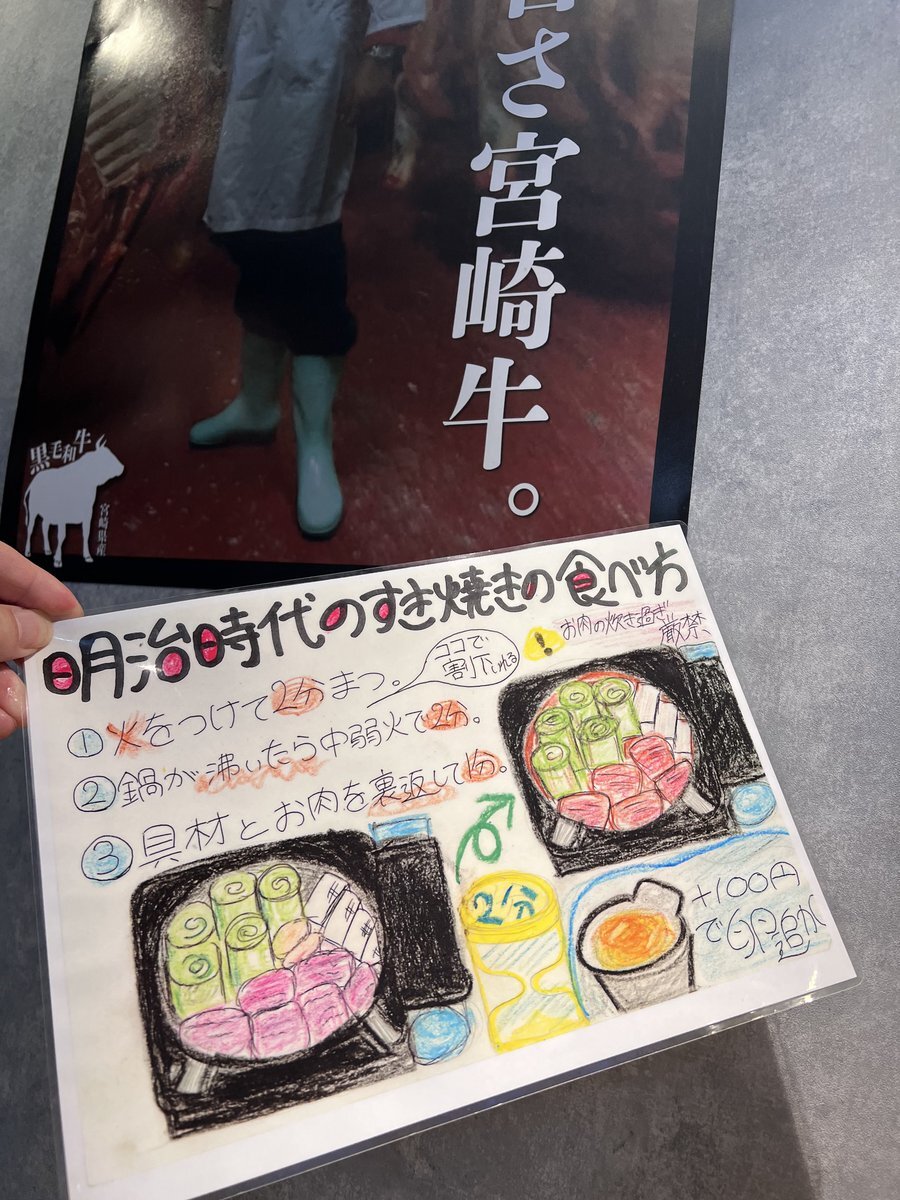 さ宮崎牛。
黒毛和牛
宮崎県産
明治時代のすき焼きの食べ方
お肉の炊き過ぎ
厳禁
ココで
割下いれる
①火をつけて2分まつ。
②鍋が沸いたら中弱火で2分。
③具材とお肉を裏返して1分。
2分
+100円
で卵追加